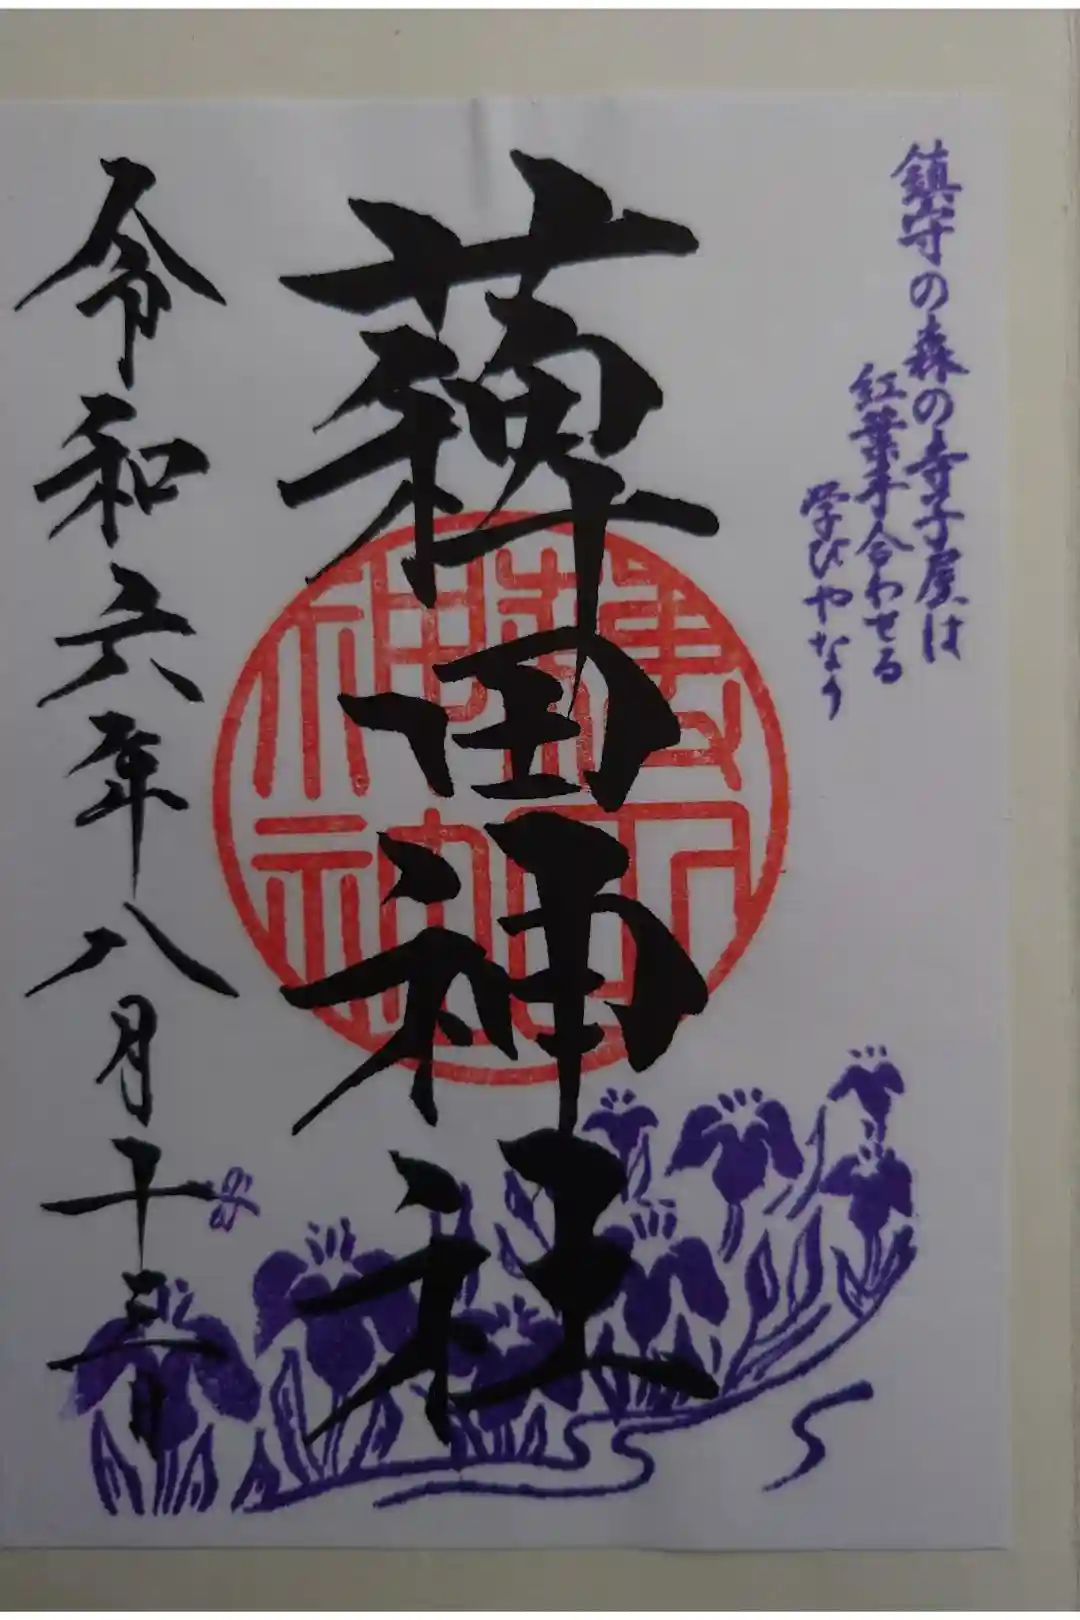 鎮守の森の寺子屋は
紅葉手合わせる
学びやなり
薭田神社
令和六年八月十三日